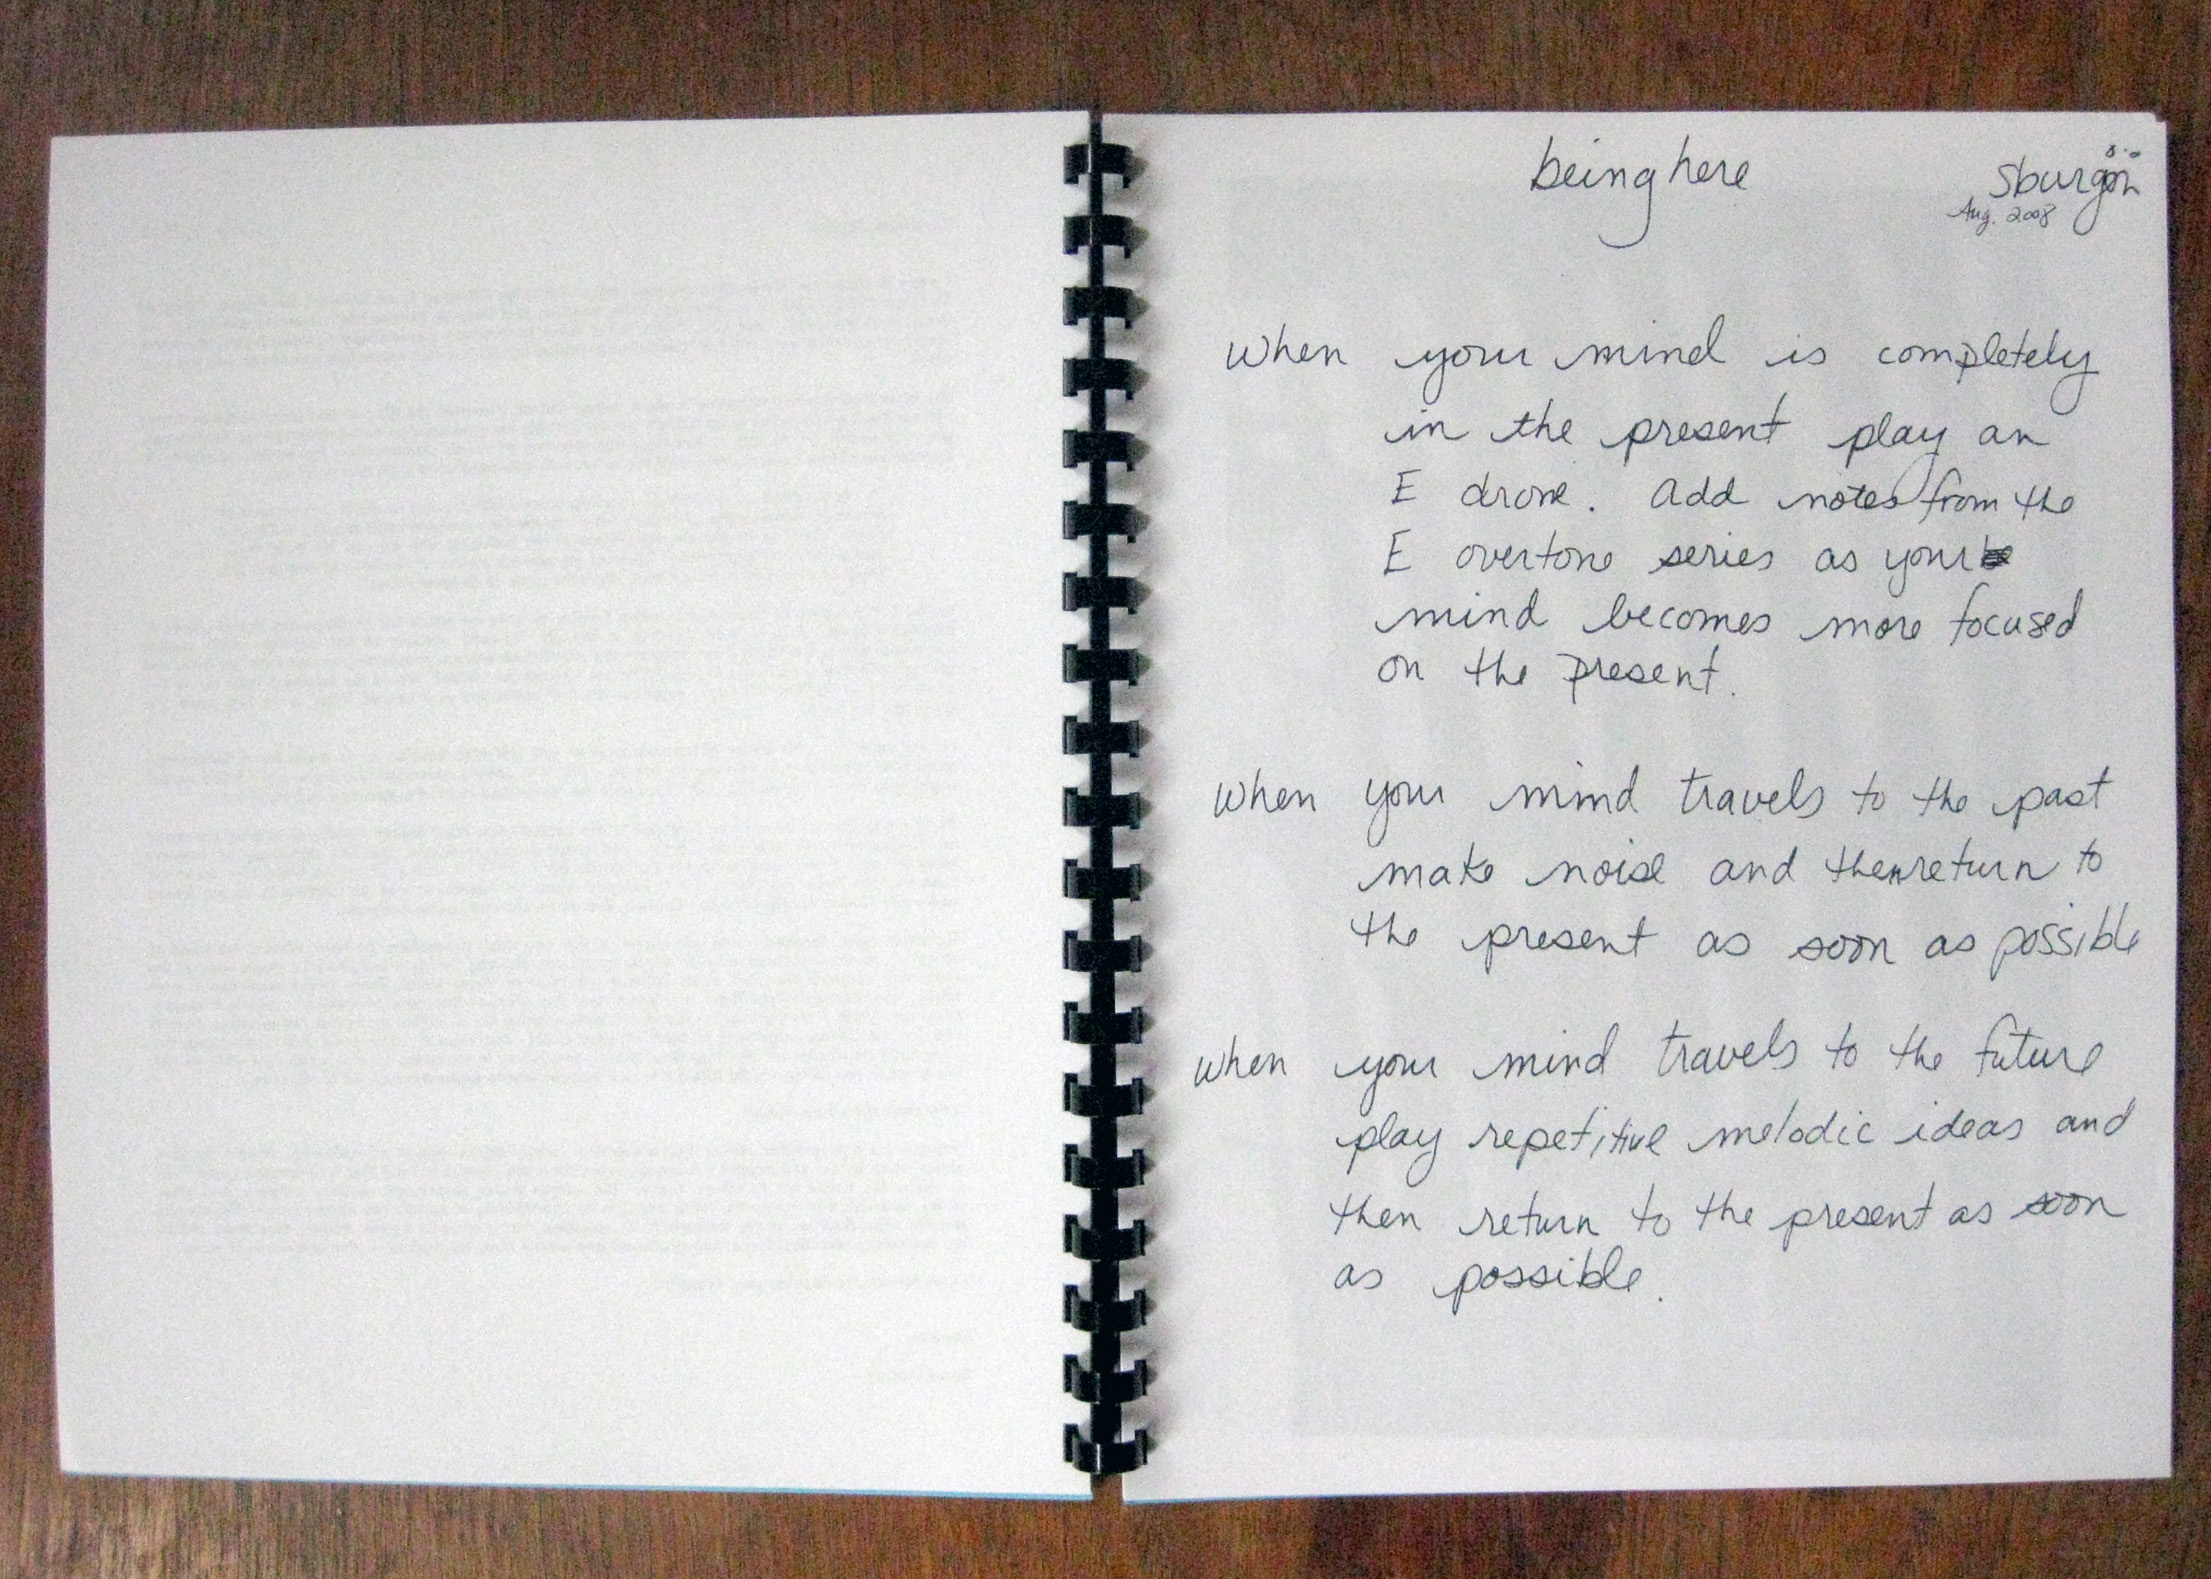 being here
Sburgön
Aug. 2008
When your mind is completely
in the present play an
E drone. Add notes from the
E overtone series as your
mind becomes more focused
on the present.
When your mind travels to the past
make noise and then return to
the present as soon as possible
When your mind travels to the future
play repetitive melodic ideas and
then return to the present as soon
as possible.